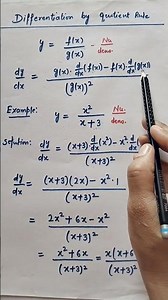 Differentiation by Quotient Rule
y = f(x)/g(x) - Nu. / deno.
dy/dx = (g(x). d/dx (f(x)) - f(x). d/dx (g(x)))/(g(x))²
Example: y = x²/(x+3) Nu. / deno.
Solution: dy/dx = ((x+3) d/dx (x²) - x² d/dx
dy/dx = ((x+3)(2x) - x².1)/(x+3)²
= (2x² + 6x - x²)/(x+3)²
= (x² + 6x)/(x+3)² = x(x+6)/(x+3)²